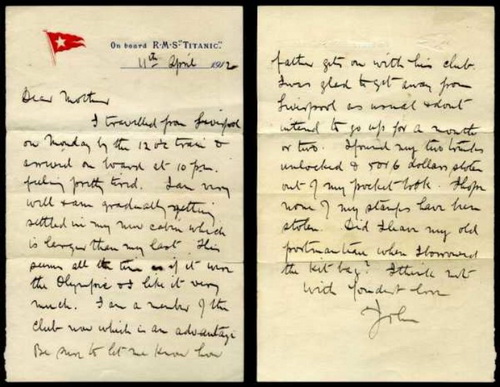 On board R.M.S "TITANIC".
11th April 1912
Dear Mother
I travelled from Liverpool
on Monday by the 12 o'c train &
arrived on board at 10 pm.
feeling pretty tired. I am very
well & am gradually getting
settled in my new cabin which
is larger than my last. This
seems all the time as if it were
the Olympic & I like it very
much. I am a member of the
club now which is an advantage
Be sure to let me know how
father gets on with his club.
I was glad to get away from
Liverpool as usual & dont
intend to go up for a month
or two. I found my two trunks
unlocked & 5 or 6 dollars stolen
out of my pocket book. I hope
none of my stamps have been
stolen. Did I leave my old
portmanteau when I borrowed
the kit bag? I think not
With fondest love
John